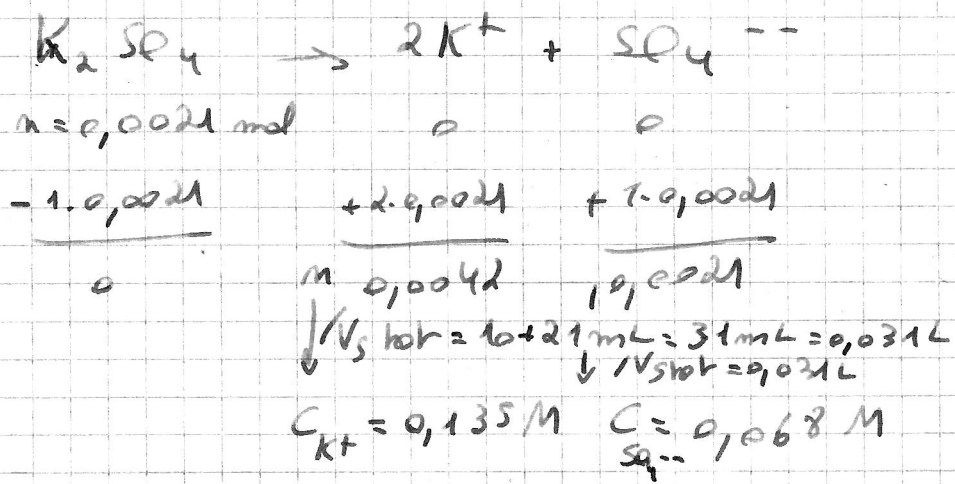 K₂SO₄ → 2K⁺ + SO₄⁻⁻
n = 0,0021 mol 0 0
- 1.0,0021 +2.0,0021 + 1.0,0021
0 n 0,0042 0,0021
↓ /Vs tot = 10+21 mL = 31 mL = 0,031 L
↓ /Vs tot = 0,031 L
C K+ = 0,135 M C SO₄-- = 0,068 M